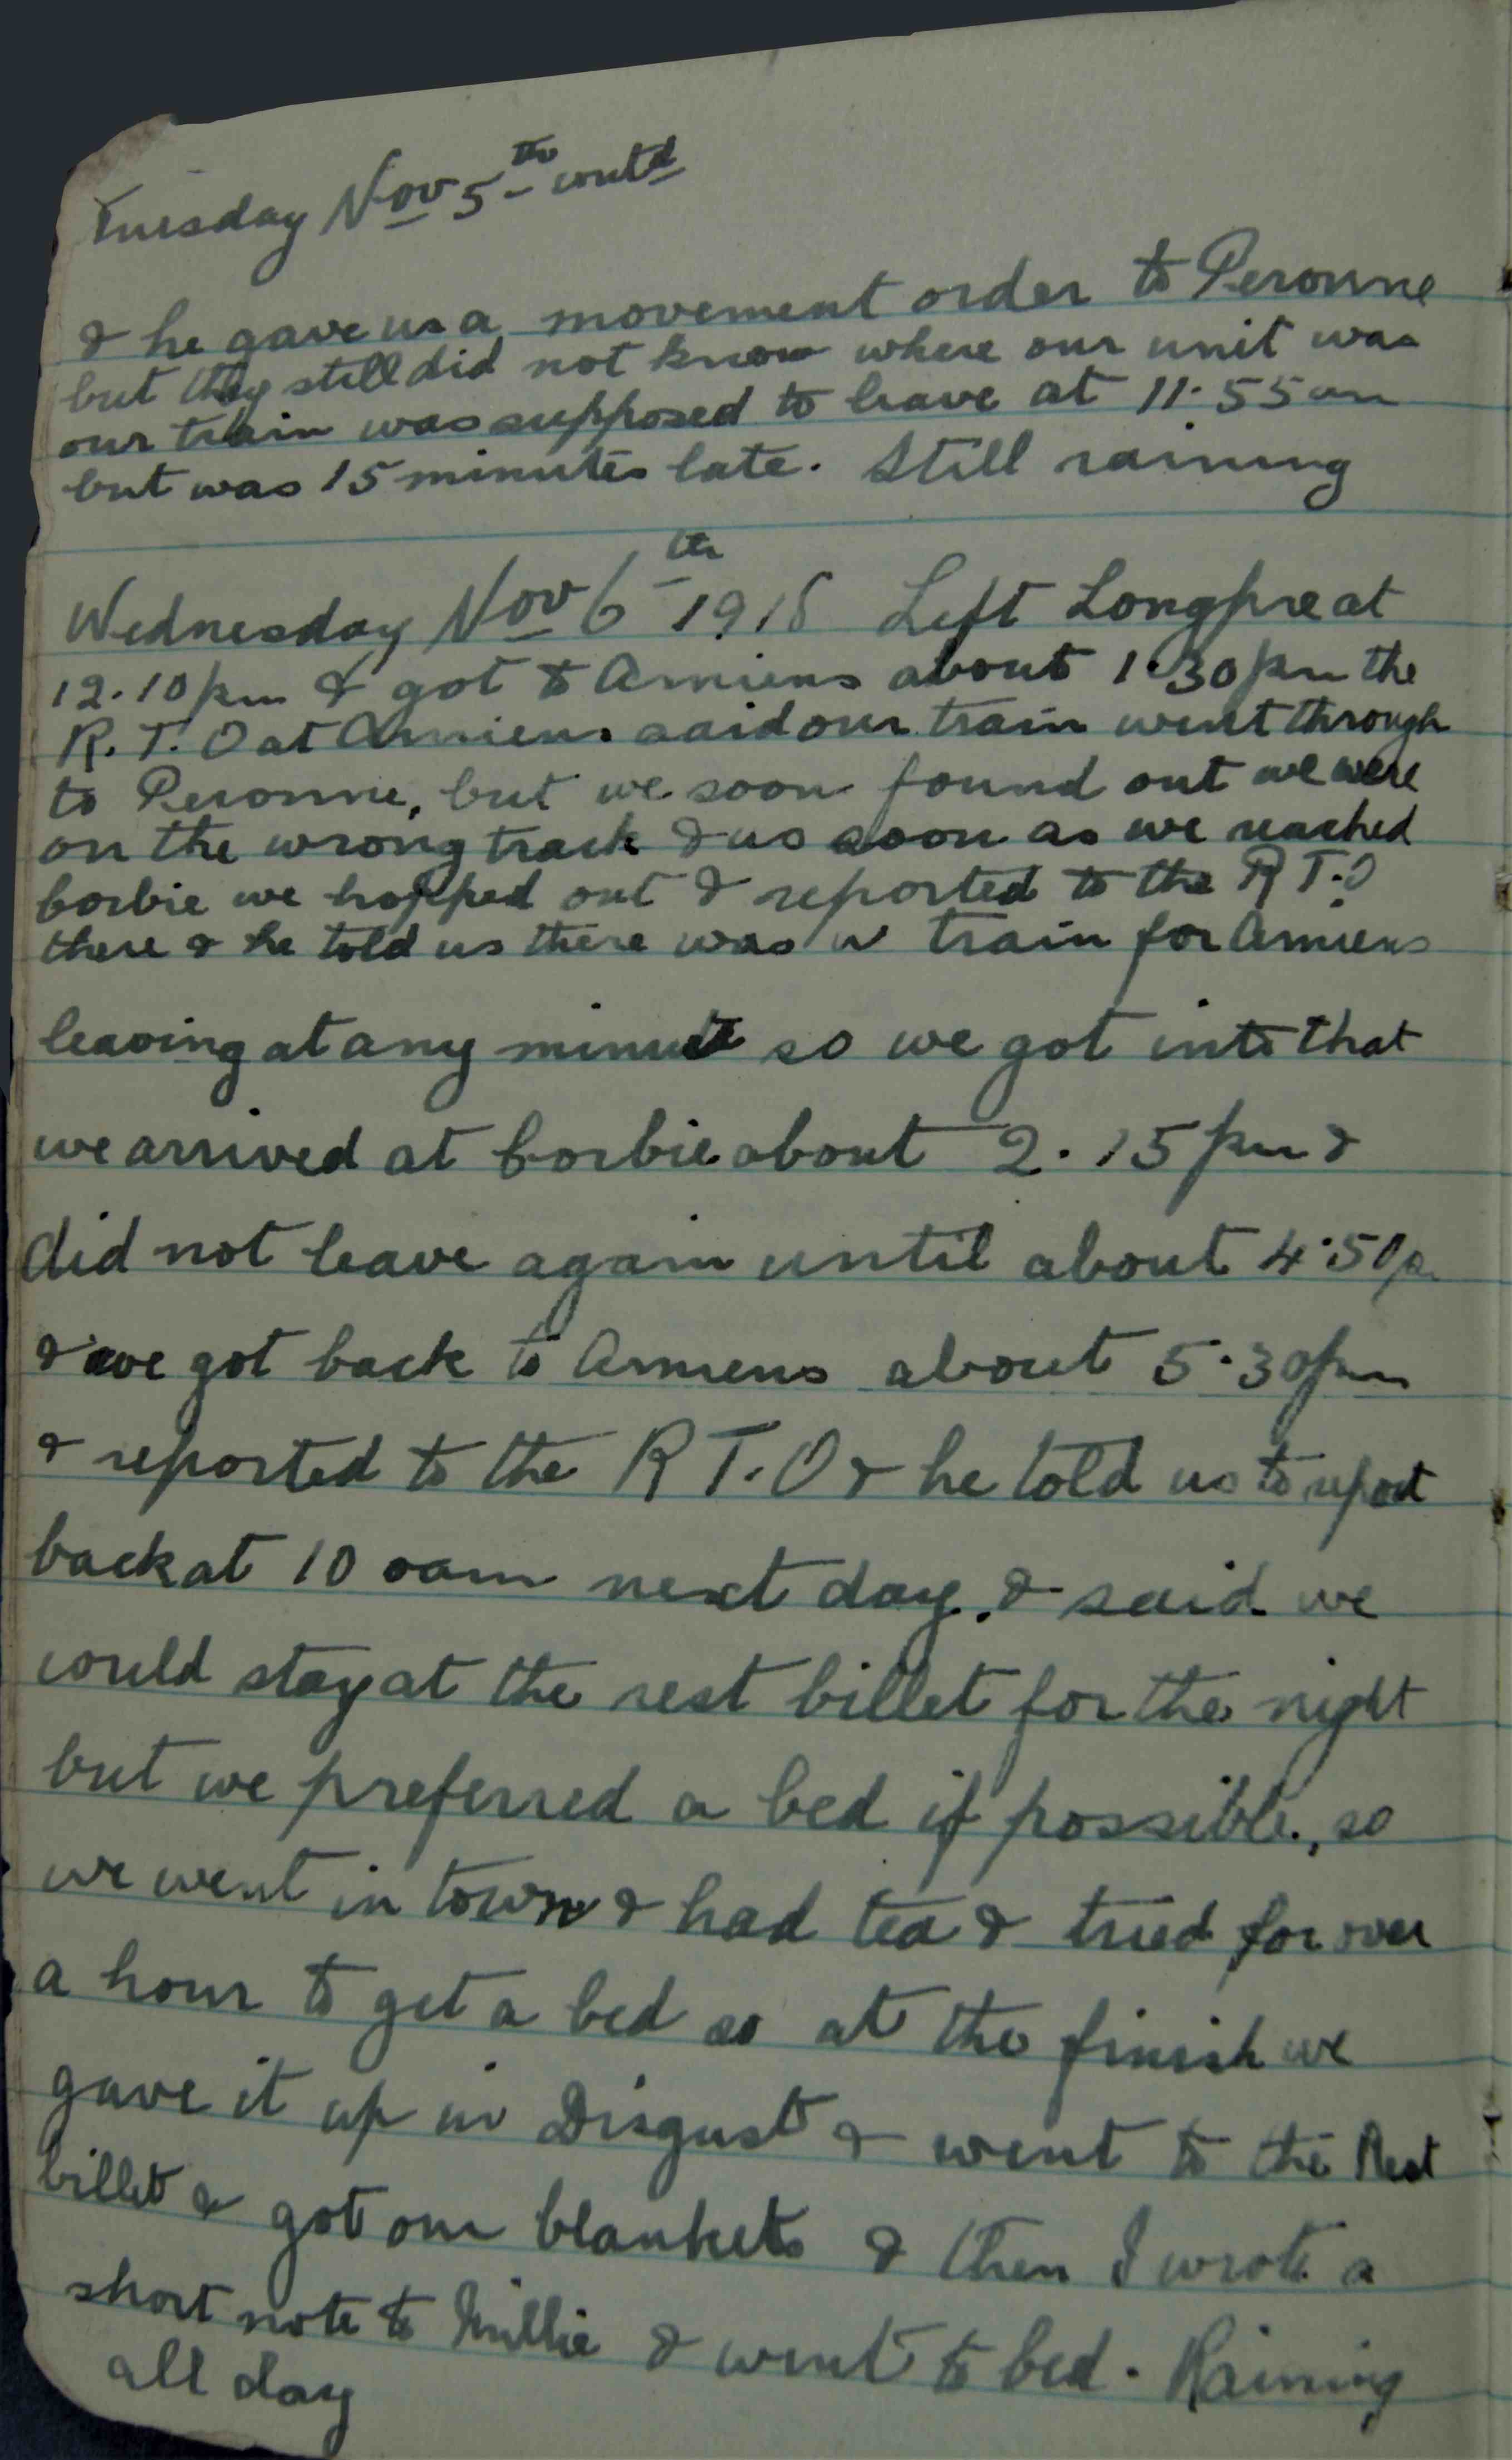 Tuesday Nov 5th contd
& he gave us a movement order to Peronne
but they still did not know where our unit was
our train was supposed to leave at 11.55 am
but was 15 minutes late. Still raining
Wednesday Nov 6th 1918 Left Longpre at
12.10 pm & got to Amiens about 1.30 pm the
R.T.O at Amiens said our train went through
to Peronne, but we soon found out we were
on the wrong track & as soon as we reached
Corbie we hopped out & reported to the R T.O
there & he told us there was a train for Amiens
leaving at any minute so we got into that
we arrived at Corbie about 2.15 pm &
did not leave again until about 4.50 p
& we got back to Amiens about 5.30 pm
& reported to the R T.O & he told us to report
back at 10 am next day. & said we
could stay at the rest billet for the night
but we preferred a bed if possible, so
we went in town & had tea & tried for over
a hour to get a bed so at the finish we
gave it up in Disgust & went to the Rest
billet & got our blankets & then I wrote a
short note to Millie & went to bed. Raining
all day